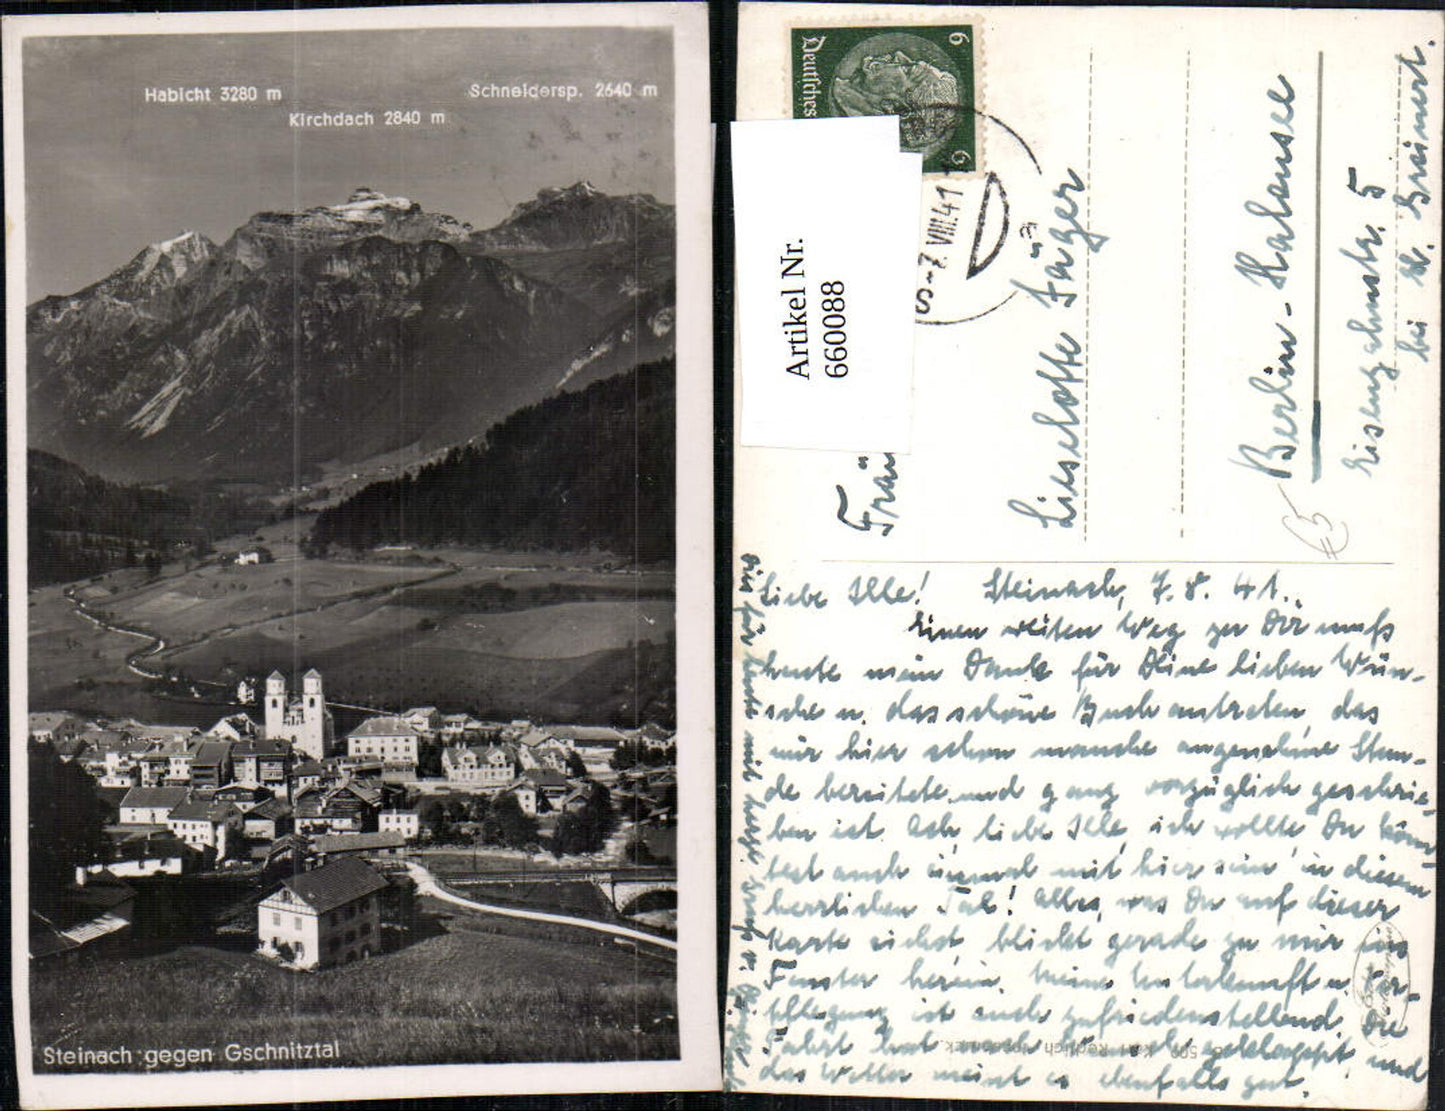 Habicht 3280 m
Schneidersp. 2640 m
Kirchdach 2840 m
Steinach gegen Gschnitztal
Deutsches
6
6
7.VIII.41
Artikel Nr.
660088
Liselotte Jäger
Berlin-Halensee
5
bei
Liebe Ille! Steinach, 7.8.41.
Einen weiten Weg zu Dir muß
heute mein Dank für Deine lieben Wün-
sche u. das schöne Buch antreten, das
mir hier schon manche angenehme Stun-
de bereitete und ganz vorzüglich geschrie-
ben ist. Ach, liebe Ille, ich wollte Du könn-
test auch einmal mit hier sein in diesem
herrlichen Tal! Alles, was Du auf dieser
Karte siehst blickt gerade zu mir ins
Fenster herein. Meine Unterkunft u. Ver-
pflegung ist auch zufriedenstellend. Die
Fahrt hat geklappt und
das Wetter meint es ebenfalls gut.
für heute mit herzl.